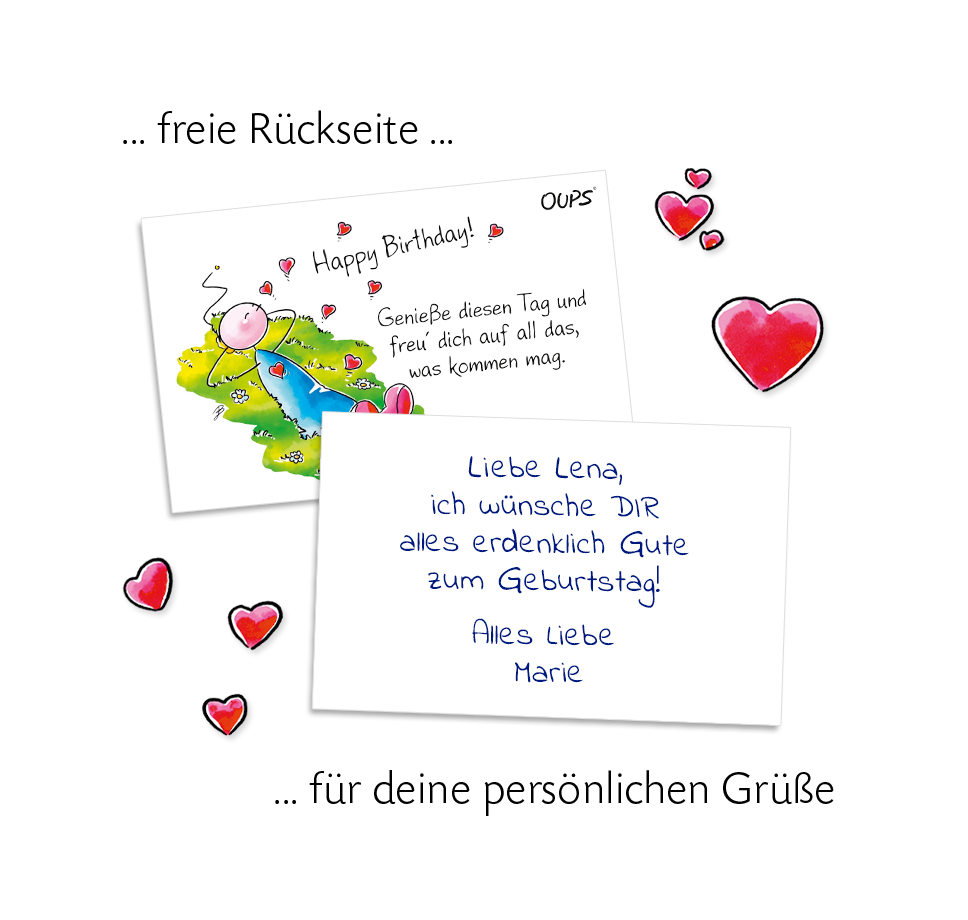 ... freie Rückseite ...
OUPS®
Happy Birthday!
Genieße diesen Tag und
freu´ dich auf all das,
was kommen mag.
Liebe Lena,
ich wünsche DIR
alles erdenklich Gute
zum Geburtstag!
Alles Liebe
Marie
... für deine persönlichen Grüße